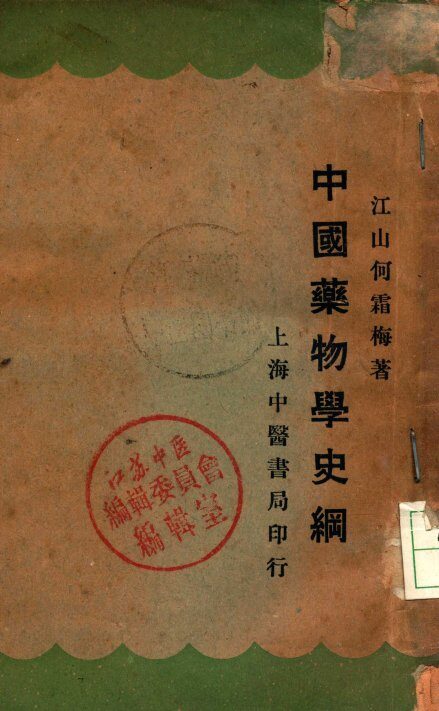 江山何霜梅著
中國藥物學史綱
上海中醫書局印行
江苏中医
編輯委員會
編輯室